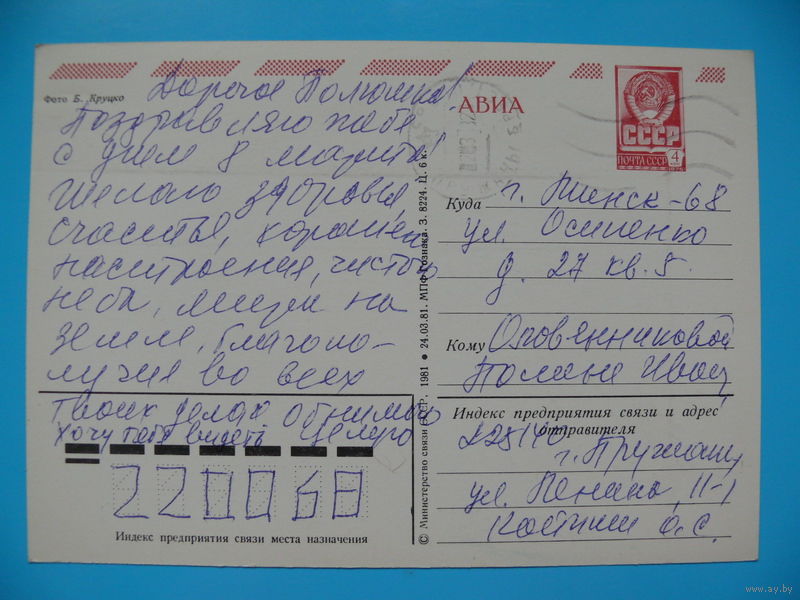 Фото Б. Круцко
Дорогая Полюшка!
Поздравляю тебя
с днем 8 марта!
Желаю здоровья,
счастья, хорошего
настроения, чистого
неба, мира на
земле, благопо-
лучия во всех
твоих делах Обнимаю
Хочу тебя видеть Целую
220068
Индекс предприятия связи места назначения
© Министерство связи СССР. 1981 • 24.03.81. МПФ Гознака. З. 8224. Ц. 6 к.
АВИА
СССР
ПОЧТА СССР 4
Куда г. Минск-68
ул. Осипенко
д. 27 кв. 5.
Кому
Полине Иван
Индекс предприятия связи и адрес
отправителя
225140
г. Пружаны
ул. Ленина, 11-1
О.С.
www.ay.by